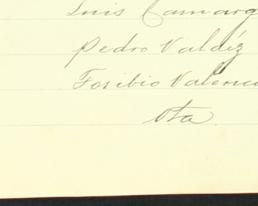 Luis Camarg
Pedro Valdéz
Toribio Valenc
Ota